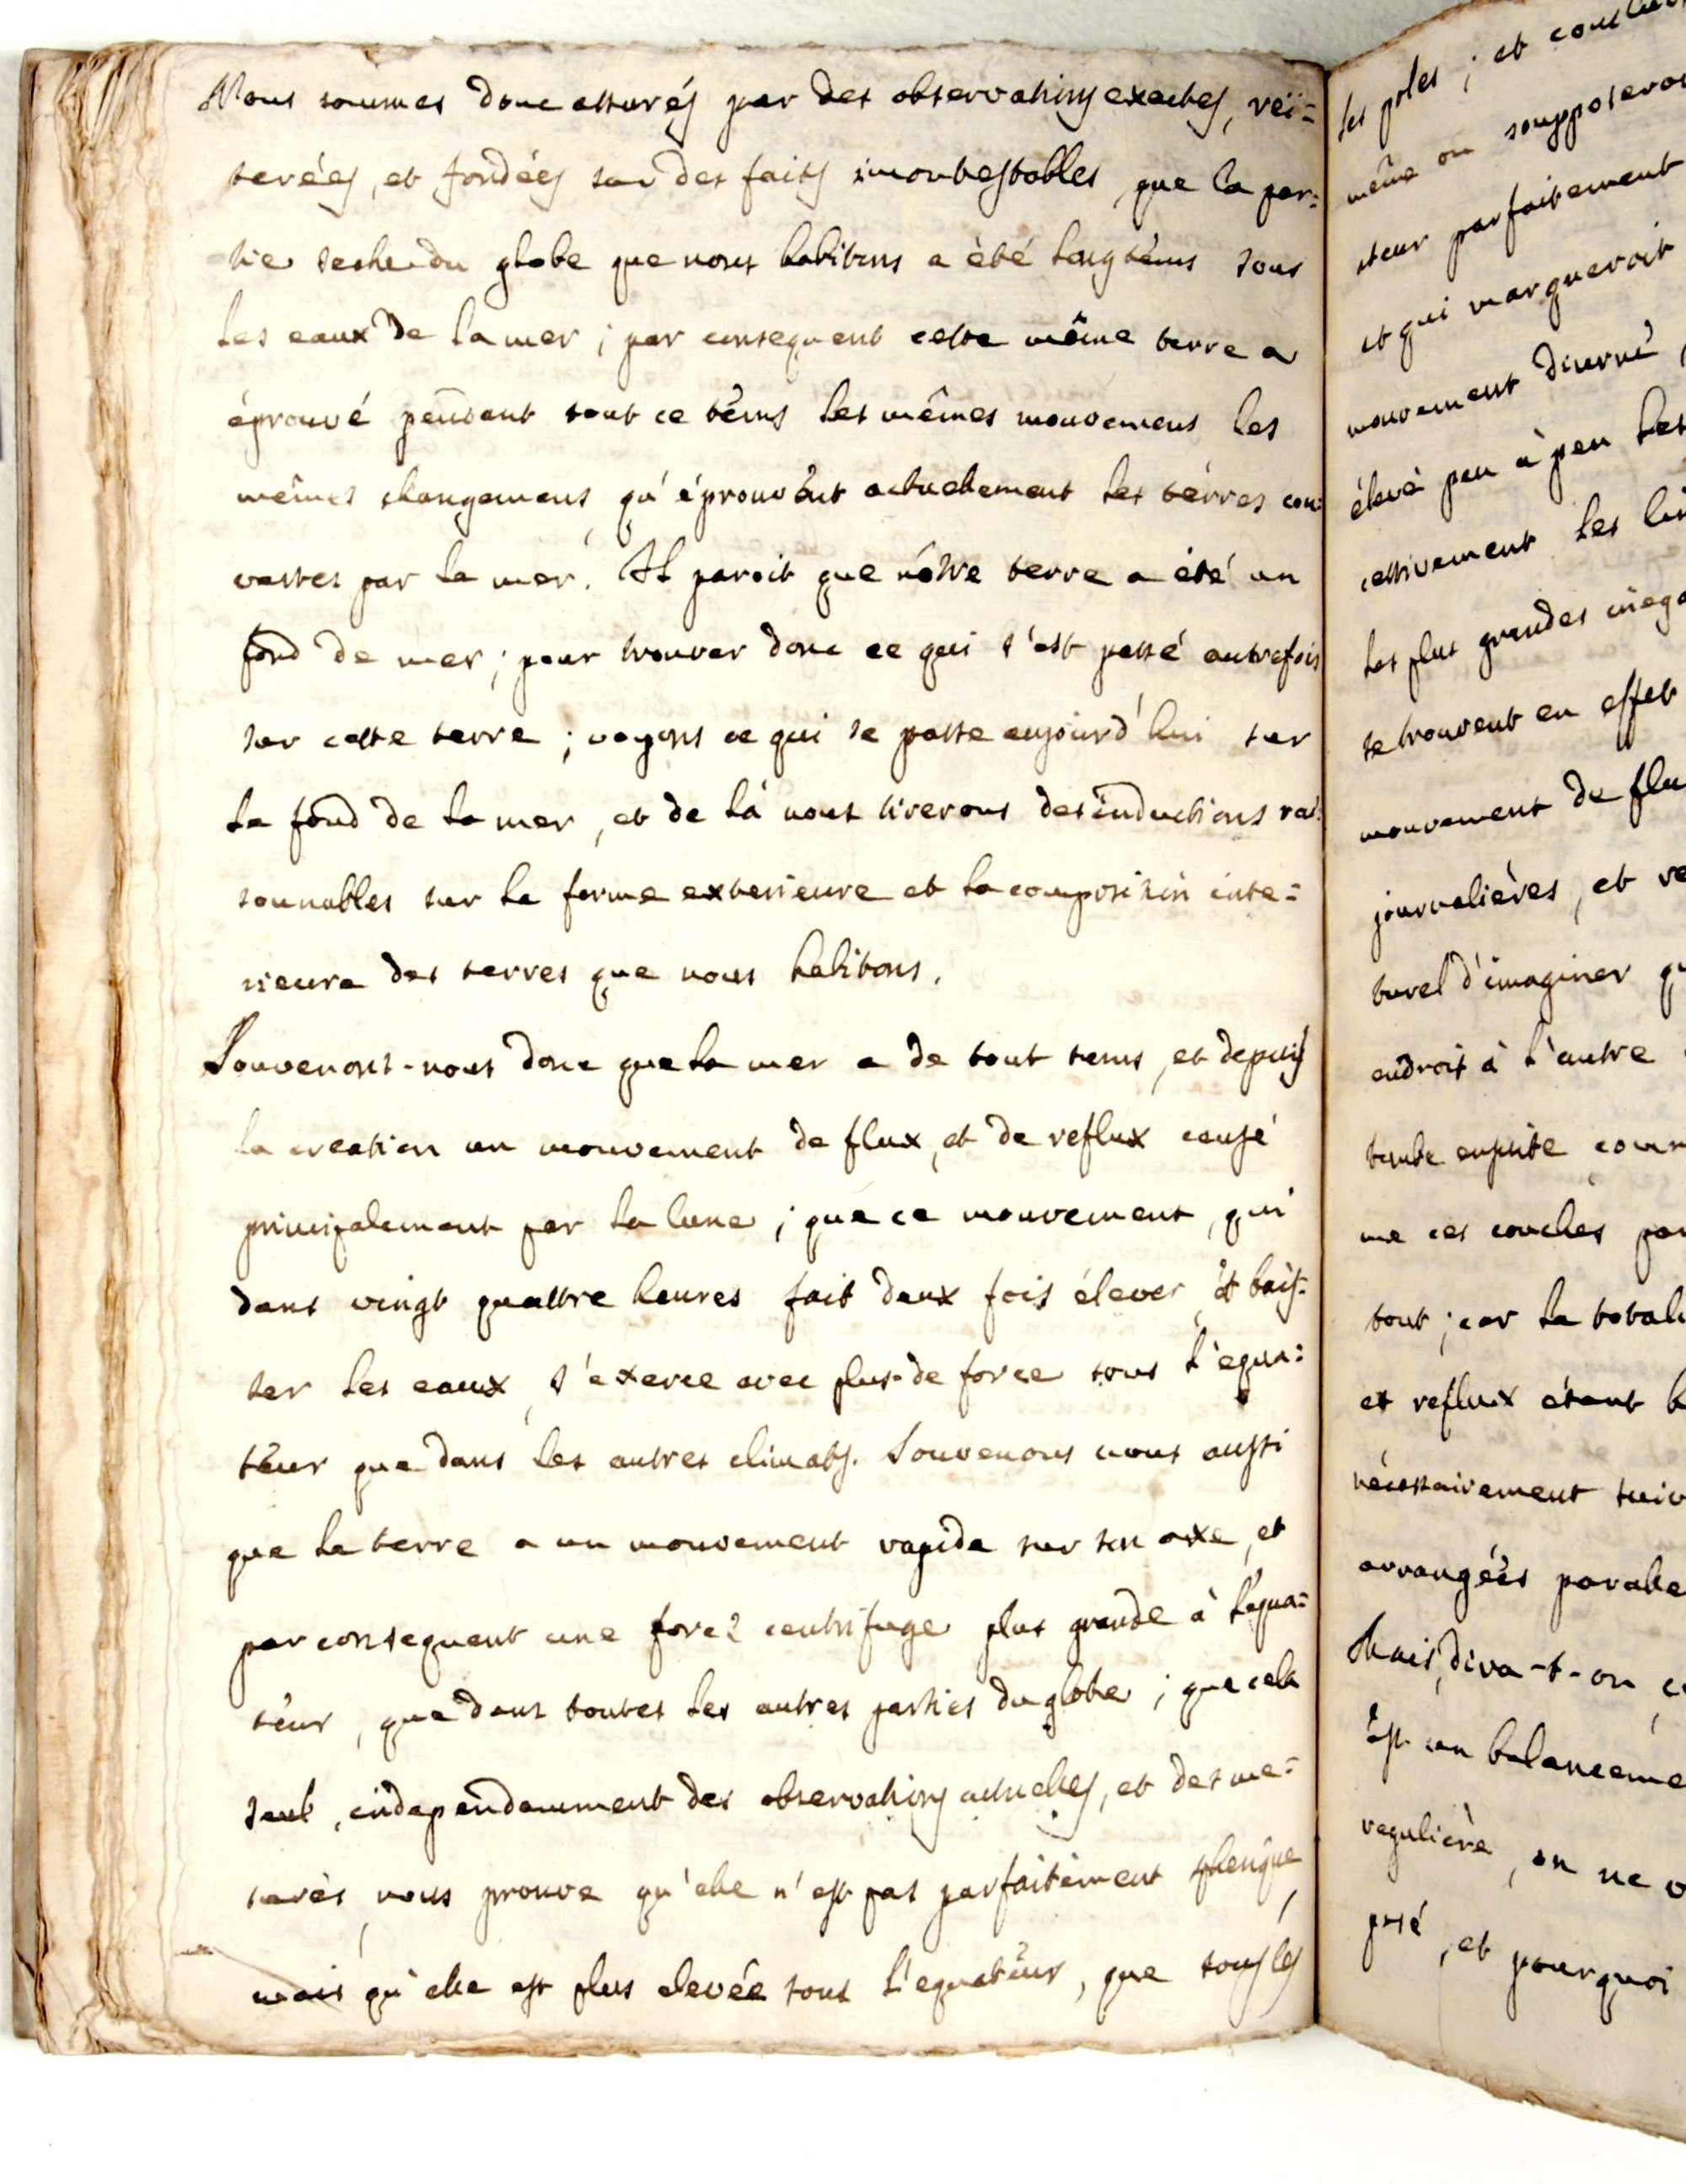 Nous sommes donc assurés par des observations exactes, réï=
terées, et fondées sur des faits incontestables, que la par=
tie seche du globe que nous habitons a èté long têms sous
les eaux de la mer ; par consequent cette même terre a
éprouvé pendant tout ce têms les mêmes mouvemens les
mêmes changemens, qu'éprouvênt actuellement les terres cou=
vertes par la mer. Il paroit que nôtre terre a été un
fond de mer ; pour trouver donc ce qui s'est passé autrefois
sur cette terre ; voyons ce qui se passe aujourd'hui sur
le fond de la mer, et de là nous tirerons des inductions rai=
sonnables sur la forme exterieure et la composition inte=
rieure des terres que nous habitons.
Souvenons-nous donc que la mer a de tout tems, et depuis
la creation un mouvement de flux, et de reflux causé
principalement par la lune ; que ce mouvement, qui
dans vingt quattre heures fait deux fois élever, et bais=
ser les eaux, s'exerce avec plus de force sous l'equa=
teur que dans les autres climats. Souvenons nous aussi
que la terre a un mouvement rapide sur son axe, et
par consequent une force centrifuge plus grande à l'equa=
teur, que dans toutes les autres parties du globe ; que cela
seul, independamment des observations actuelles, et des me=
surès, nous prouve qu'elle n'est pas parfaitement spherique,
mais qu'elle est plus elevée sous l'equateur, que sous les
les poles ; et
même on supposeroi
steur parfaitement
et qui marqueroit
mouvement diurne,
élevé peu à peu les
cessivement les
les plus grandes inega
se trouvent en effet
mouvement de flu
journalières, et re
turel d'imaginer qu
endroit à l'autre
tombe ensuite comm
me ces couches par
tout ; car la totali
et reflux étant
nécessairement suiv
arrangées paralle
Mais, dira-t-on, c
est un balanceme
regulière, on ne v
posé, et pourquoi